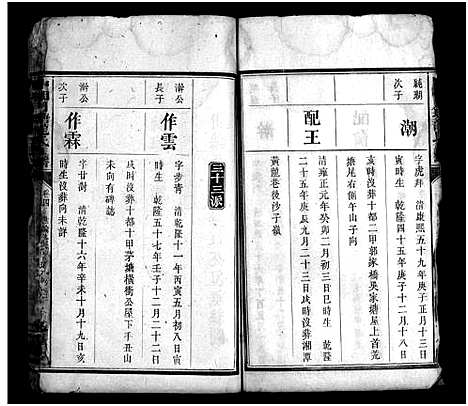 純嘏
次子
潮
字虎拜 清康熙五十九年庚子十月十三日
亥時生 乾隆四十五年庚子十二月十八
時沒葬十都二甲郭家橋吳家塘屋上首荒
塘尾右側午山子向
配王
清雍正元年癸卯二月初三日巳時生 乾隆
二十五年庚辰九月二十三日戌時沒葬湘潭
黃龍巷後沙子嶺
三十三派
澍公
長子
作雲
字步青 清乾隆十一年丙寅五月初八日寅
時生 乾隆五十七年壬子十二月二十二日
時沒葬十甲茅塘橫衝公屋下手丑山
未向有碑誌
澍公
次子
作霖
字甘澍 清乾隆十六年辛未十月十九日亥
時生沒葬向未詳